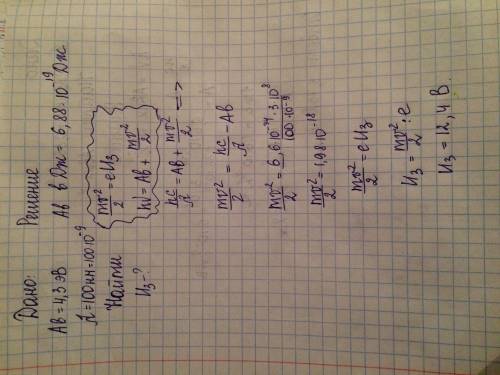 Дано:
Ав = 4,3 эВ
λ = 100 нм = 100·10⁻⁹
Найти
Uз - ?
Решение
Ав в Дж = 6,88·10⁻¹⁹ Дж
mv²/2 = eUз
hν = Ав + mv²/2
hc/λ = Ав + mv²/2 =>
mv²/2 = hc/λ - Ав
mv²/2 = 6,6·10⁻³⁴·3·10⁸/100·10⁻⁹
mv²/2 = 1,98·10⁻¹⁸
mv²/2 = eUз
Uз = mv²/2 : e
Uз = 12,4 В.